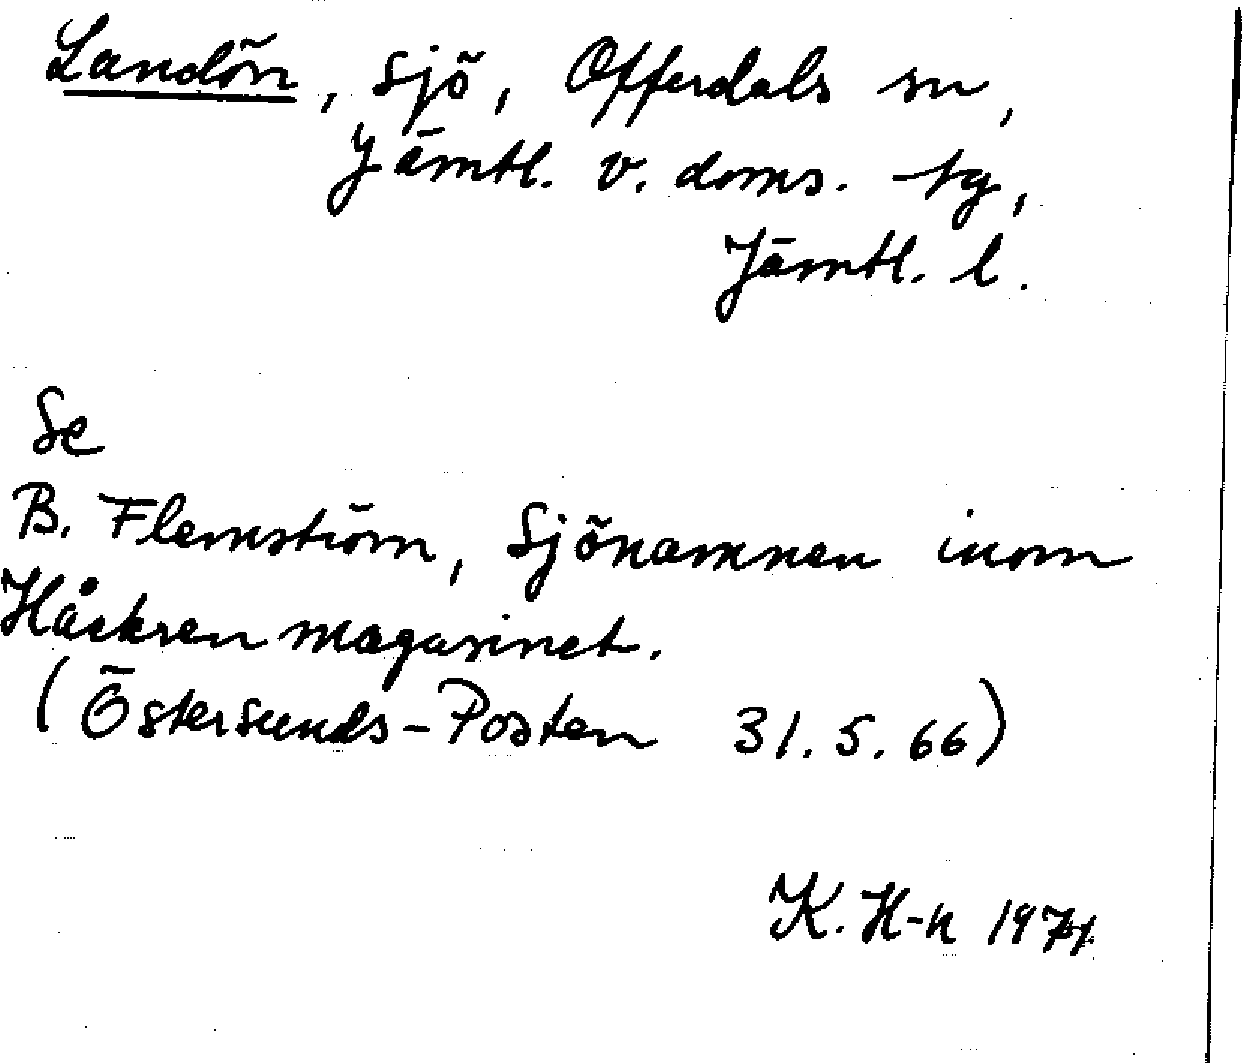 Landön, sjö, Offerdals sn,
Jämtl. v. doms. tg,
Jämtl. l.
Se
B. Flemström, Sjönamnen inom
Håckrenmagasinet.
(Östersunds-Posten 31.5.66)
K. H-n 1971